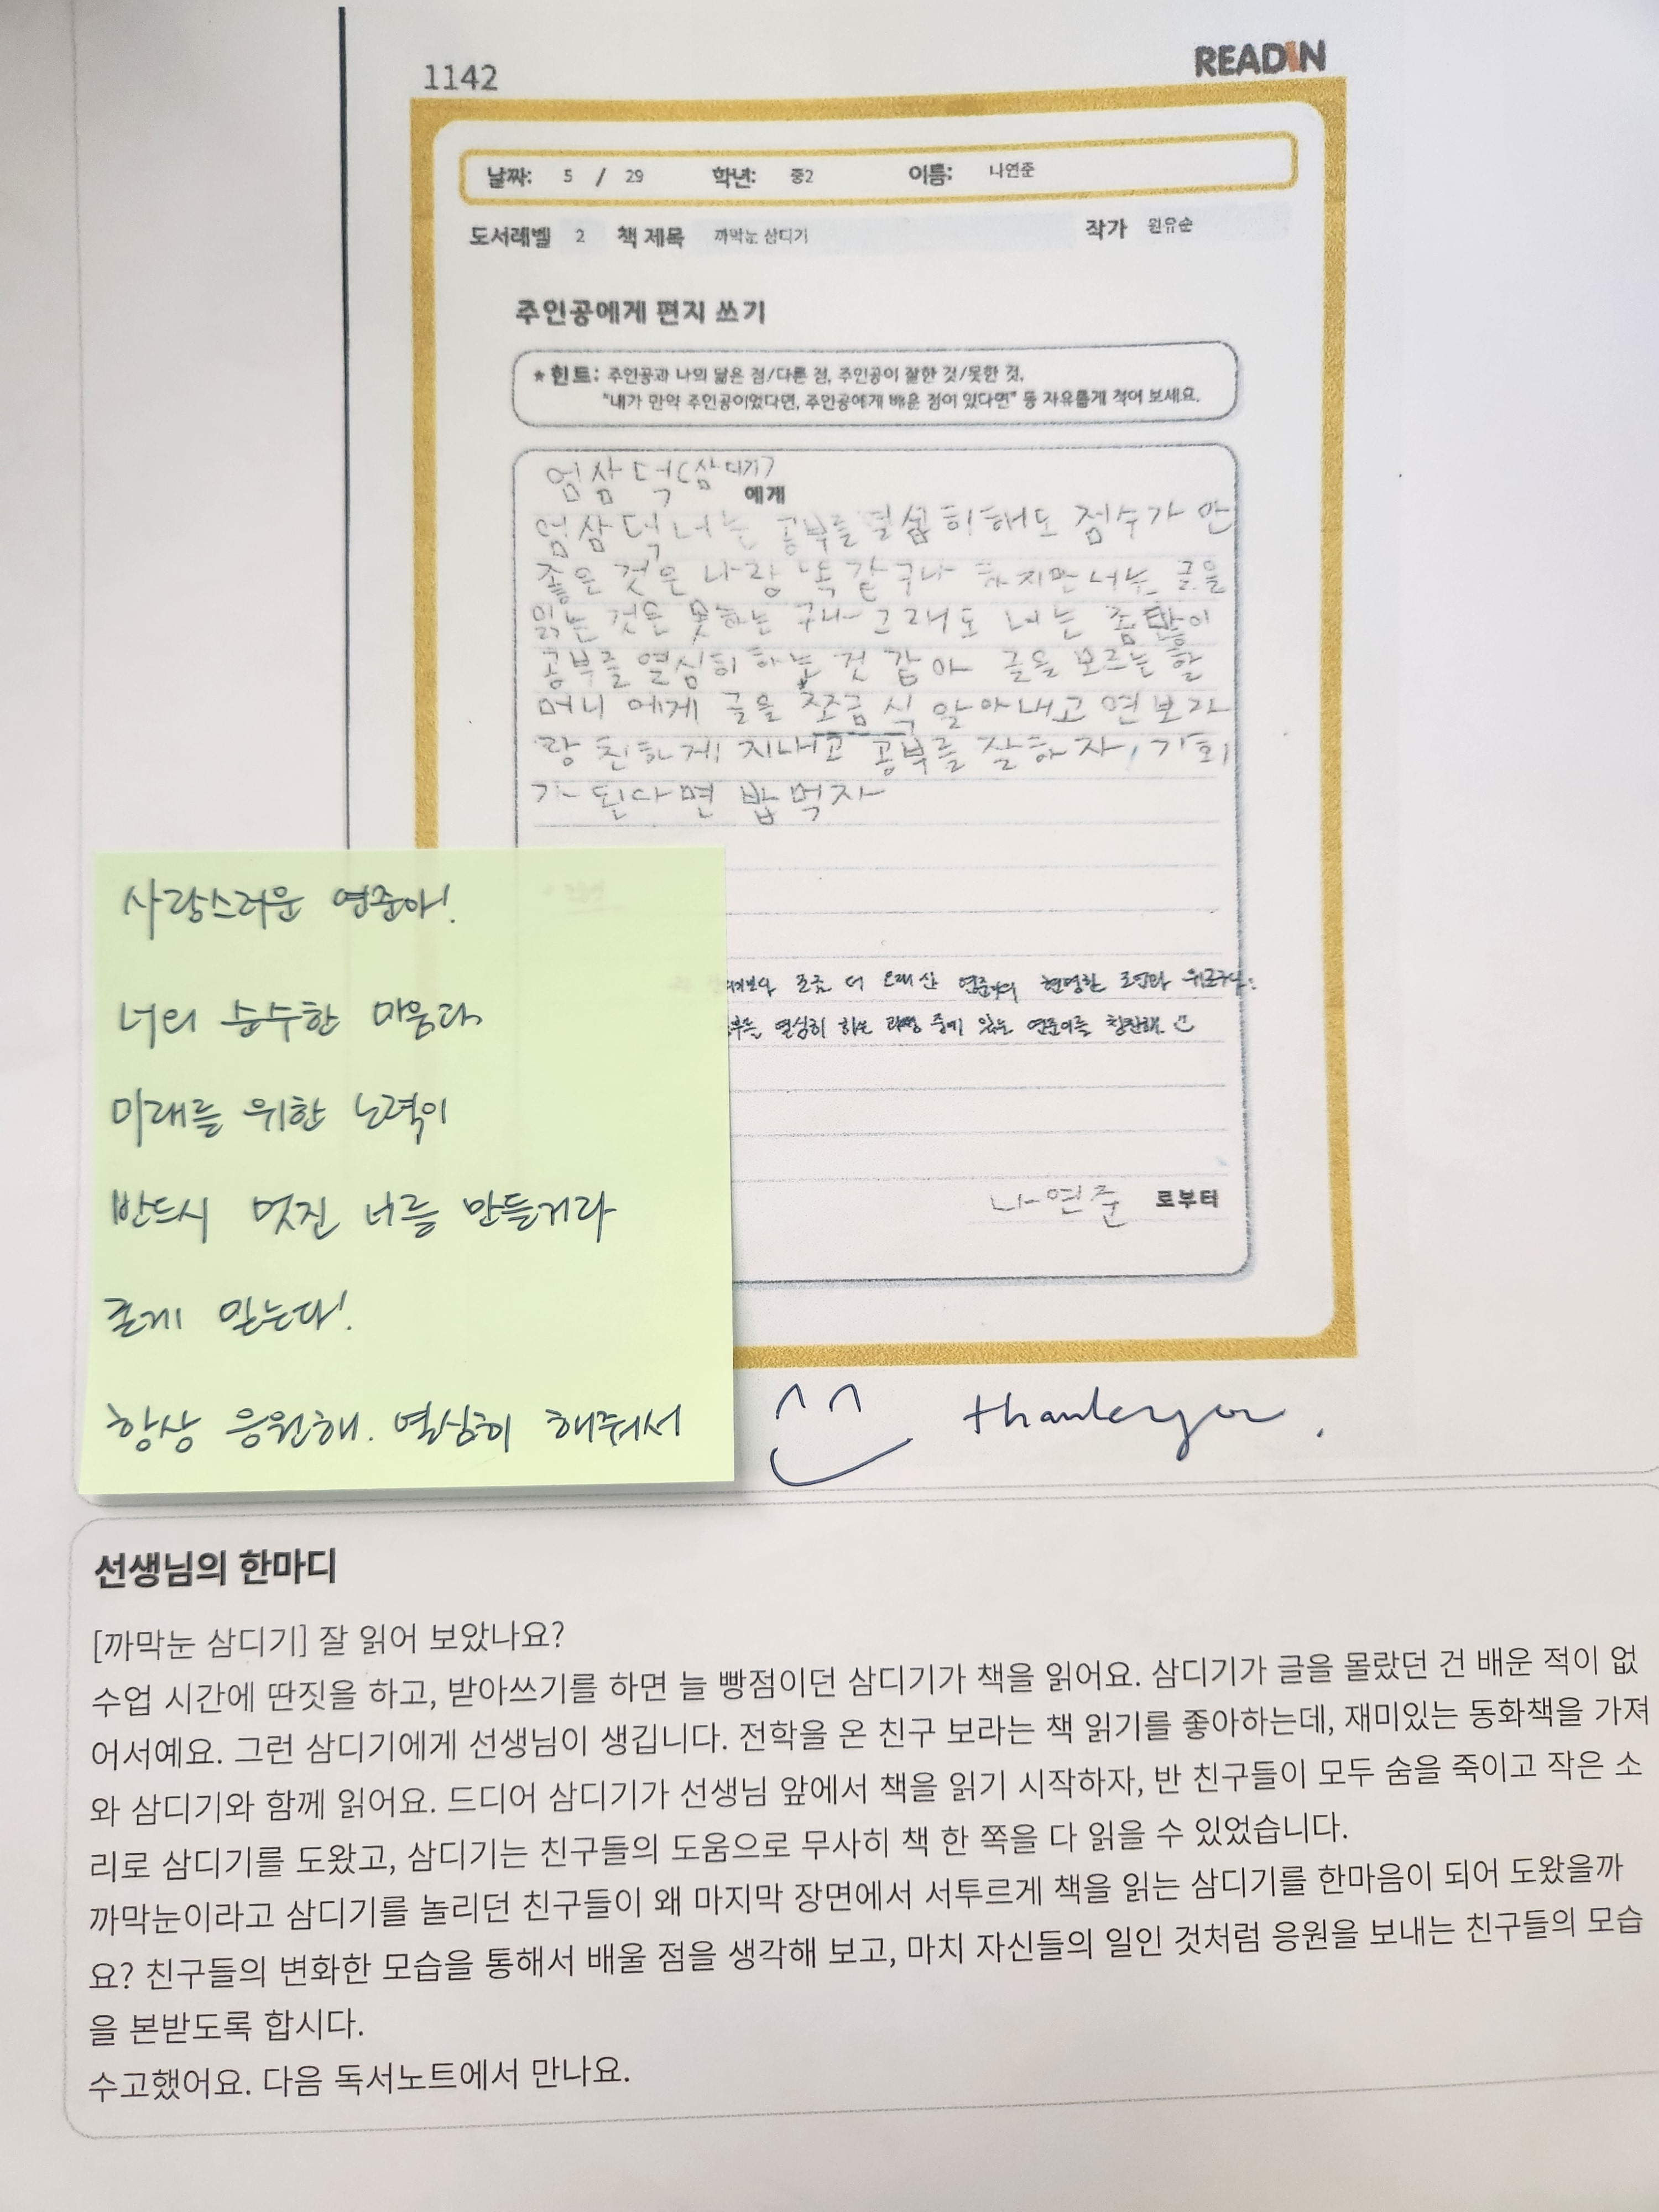 1142
READIN
날짜: 5 / 29 학년: 중2 이름: 나연준
도서레벨 2 책 제목 까막눈 삼디기 작가 원유순
주인공에게 편지 쓰기
★힌트: 주인공과 나의 닮은 점/다른 점, 주인공이 잘한 것/못한 것,
"내가 만약 주인공이었다면, 주인공에게 배운 점이 있다면" 등 자유롭게 적어 보세요.
엄삼덕(삼디기)
에게
엄삼덕 너는 공부를 열심히해도 점수가 안
좋은 것은 나랑 똑같구나 하지만 너는 글을
읽는 것은 못하는구나 그래도 너는 좀 많이
공부를 열심히 하는 것 같아 글을 모르는 할
머니 에게 글을 조금식 알아내고 연보라
랑 친하게 지내고 공부를 잘하자, 기회
가 된다면 밥먹자
조금 더 오래 산 연준이의 현명한 조언과 위로구나.
열심히 하는 과정 중에 있는 연준이를 칭찬해
나연준 로부터
사랑스러운 연준아!
너의 순수한 마음과
미래를 위한 노력이
반드시 멋진 너를 만들거라
굳게 믿는다!
항상 응원해. 열심히 해줘서
thank you.
선생님의 한마디
[까막눈 삼디기] 잘 읽어 보았나요?
수업 시간에 딴짓을 하고, 받아쓰기를 하면 늘 빵점이던 삼디기가 책을 읽어요. 삼디기가 글을 몰랐던 건 배운 적이 없
어서예요. 그런 삼디기에게 선생님이 생깁니다. 전학을 온 친구 보라는 책 읽기를 좋아하는데, 재미있는 동화책을 가져
와 삼디기와 함께 읽어요. 드디어 삼디기가 선생님 앞에서 책을 읽기 시작하자, 반 친구들이 모두 숨을 죽이고 작은 소
리로 삼디기를 도왔고, 삼디기는 친구들의 도움으로 무사히 책 한 쪽을 다 읽을 수 있었습니다.
까막눈이라고 삼디기를 놀리던 친구들이 왜 마지막 장면에서 서투르게 책을 읽는 삼디기를 한마음이 되어 도왔을까
요? 친구들의 변화한 모습을 통해서 배울 점을 생각해 보고, 마치 자신들의 일인 것처럼 응원을 보내는 친구들의 모습
을 본받도록 합시다.
수고했어요. 다음 독서노트에서 만나요.